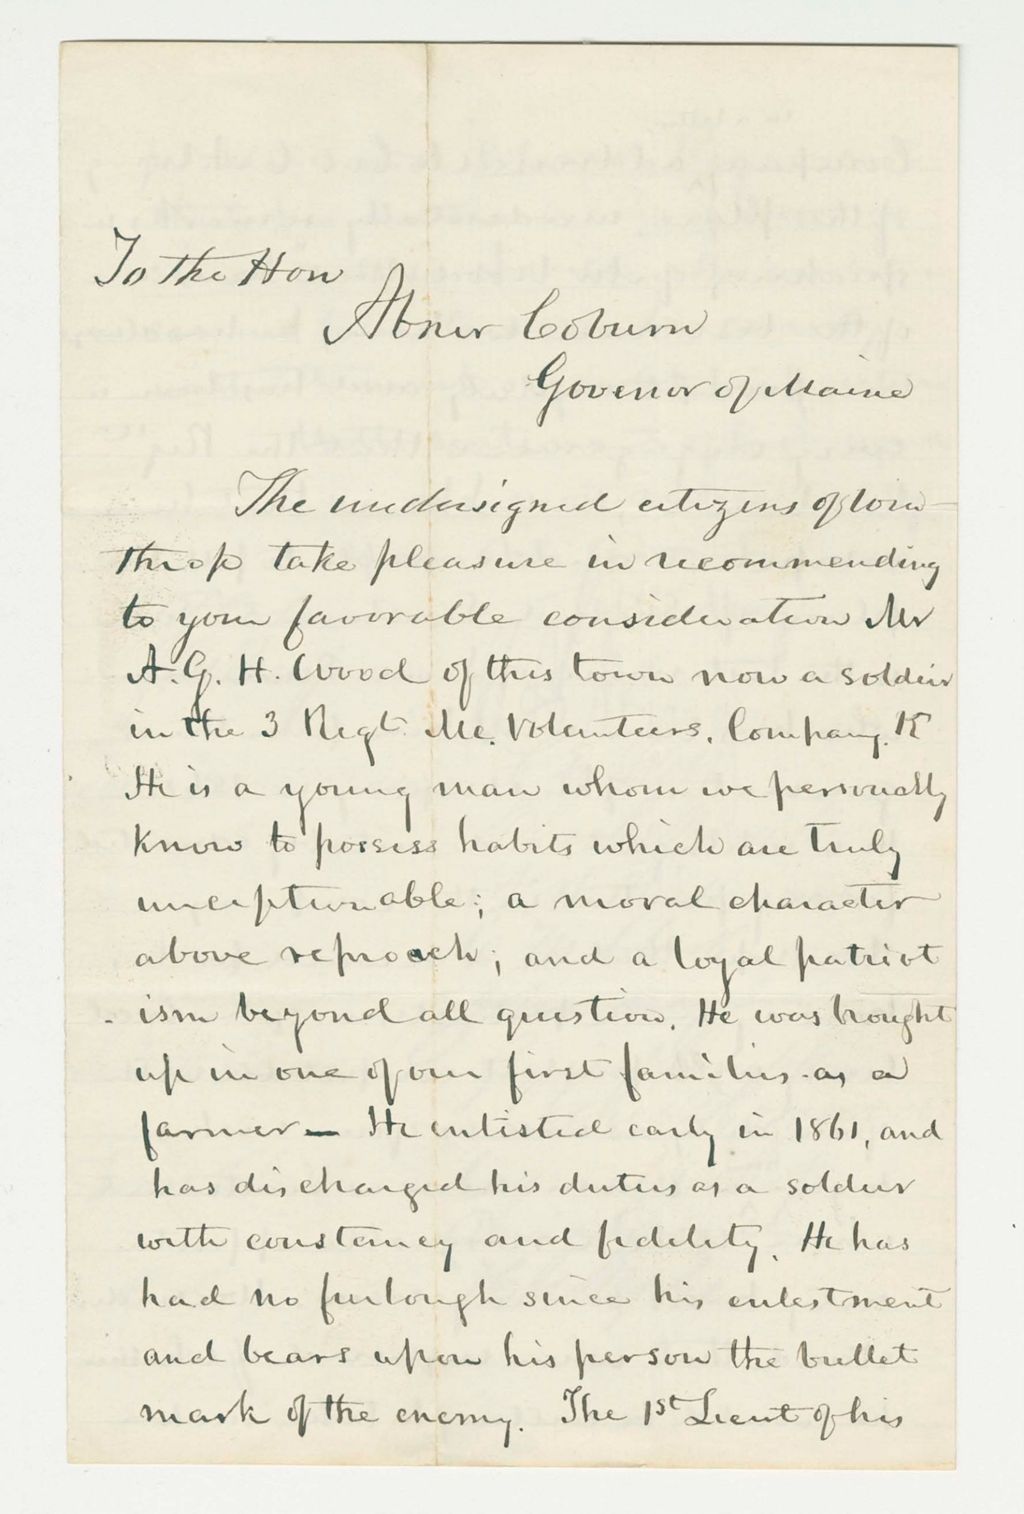 To the Hon
Abner Coburn
Govenor of Maine
The undersigned citizens of Win-
throp take pleasure in recommending
to your favorable consideration Mr
A. G. H. Wood of this town now a soldier
in the 3 Regt Me. Volunteers, Company. K
He is a young man whom we personally
know to possess habits which are truly
unceptionable; a moral character
above reproach; and a loyal patriot
ism beyond all question. He was brought
up in one of our first families as a
farmer — He entisted early in 1861, and
has discharged his duties as a soldier
with constancy and fidelity. He has
had no furlough since his enlestment
and bears upon his person the bullet
mark of the enemy. The 1st Lieut of his